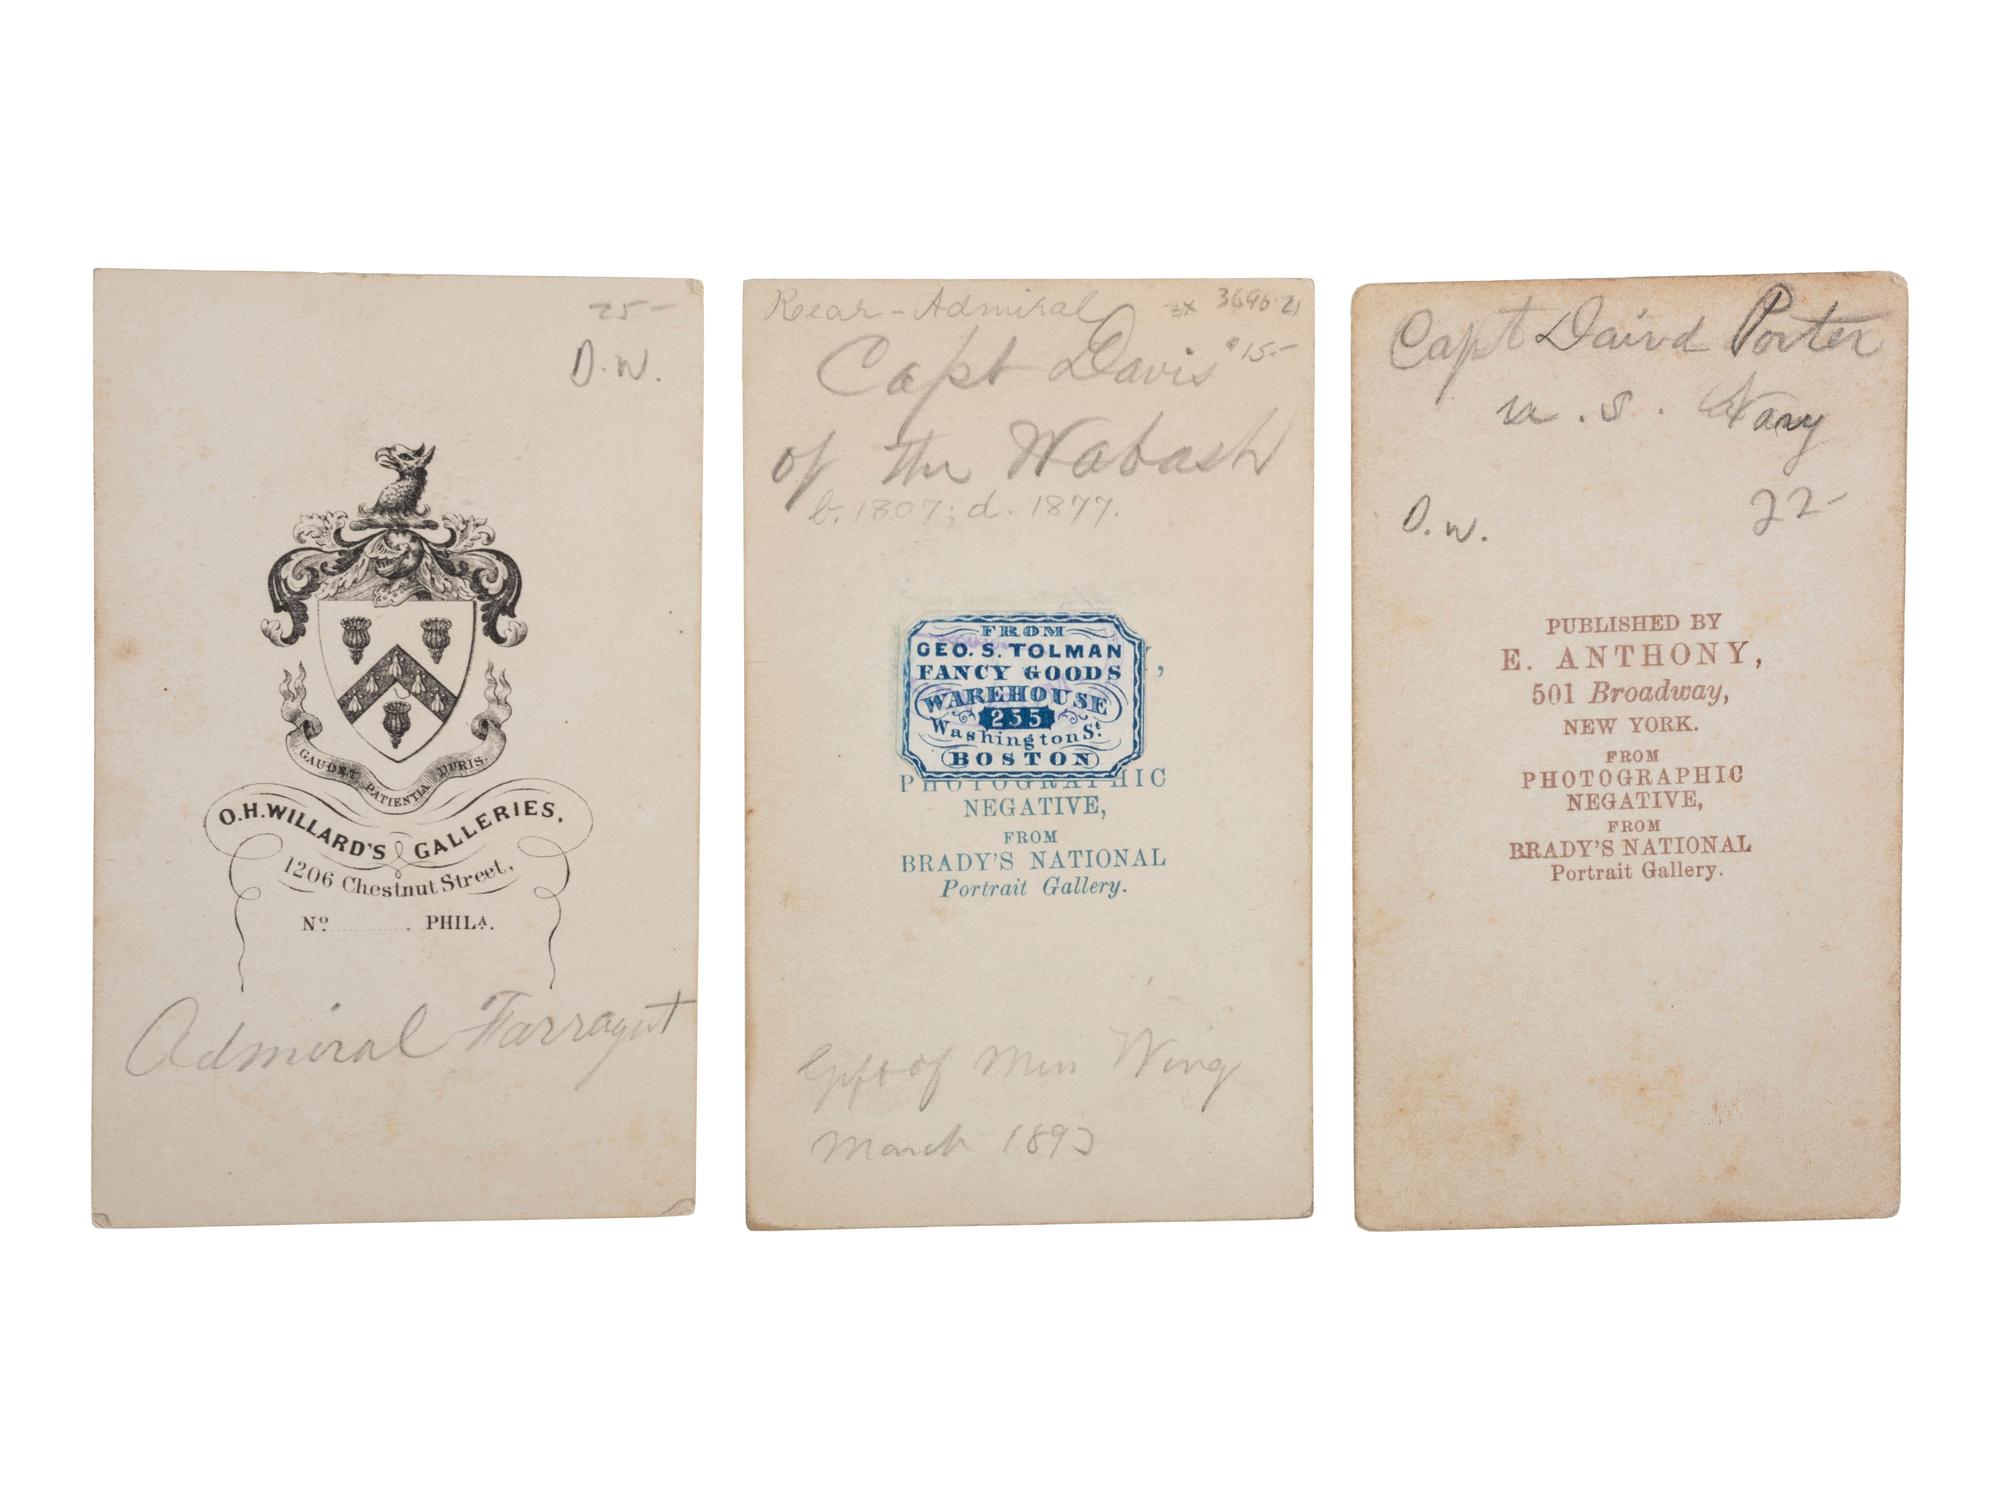 25-
D.W.
GAUDET PATIENTIA DURIS.
O.H. WILLARD'S GALLERIES,
1206 Chestnut Street,
No. PHILA.
Admiral Farragut
Rear-Admiral
3696.21
Capt Davis $15.-
of the Wabash
b. 1807; d. 1877.
FROM
GEO. S. TOLMAN
FANCY GOODS
WAREHOUSE
255
Washington St.
BOSTON
PHOTOGRAPHIC
NEGATIVE,
FROM
BRADY'S NATIONAL
Portrait Gallery.
Gift of Miss Wing
March 1893
Capt Daivd Porter
U.S. Navy
22-
D.W.
PUBLISHED BY
E. ANTHONY,
501 Broadway,
NEW YORK.
FROM
PHOTOGRAPHIC
NEGATIVE,
FROM
BRADY'S NATIONAL
Portrait Gallery.